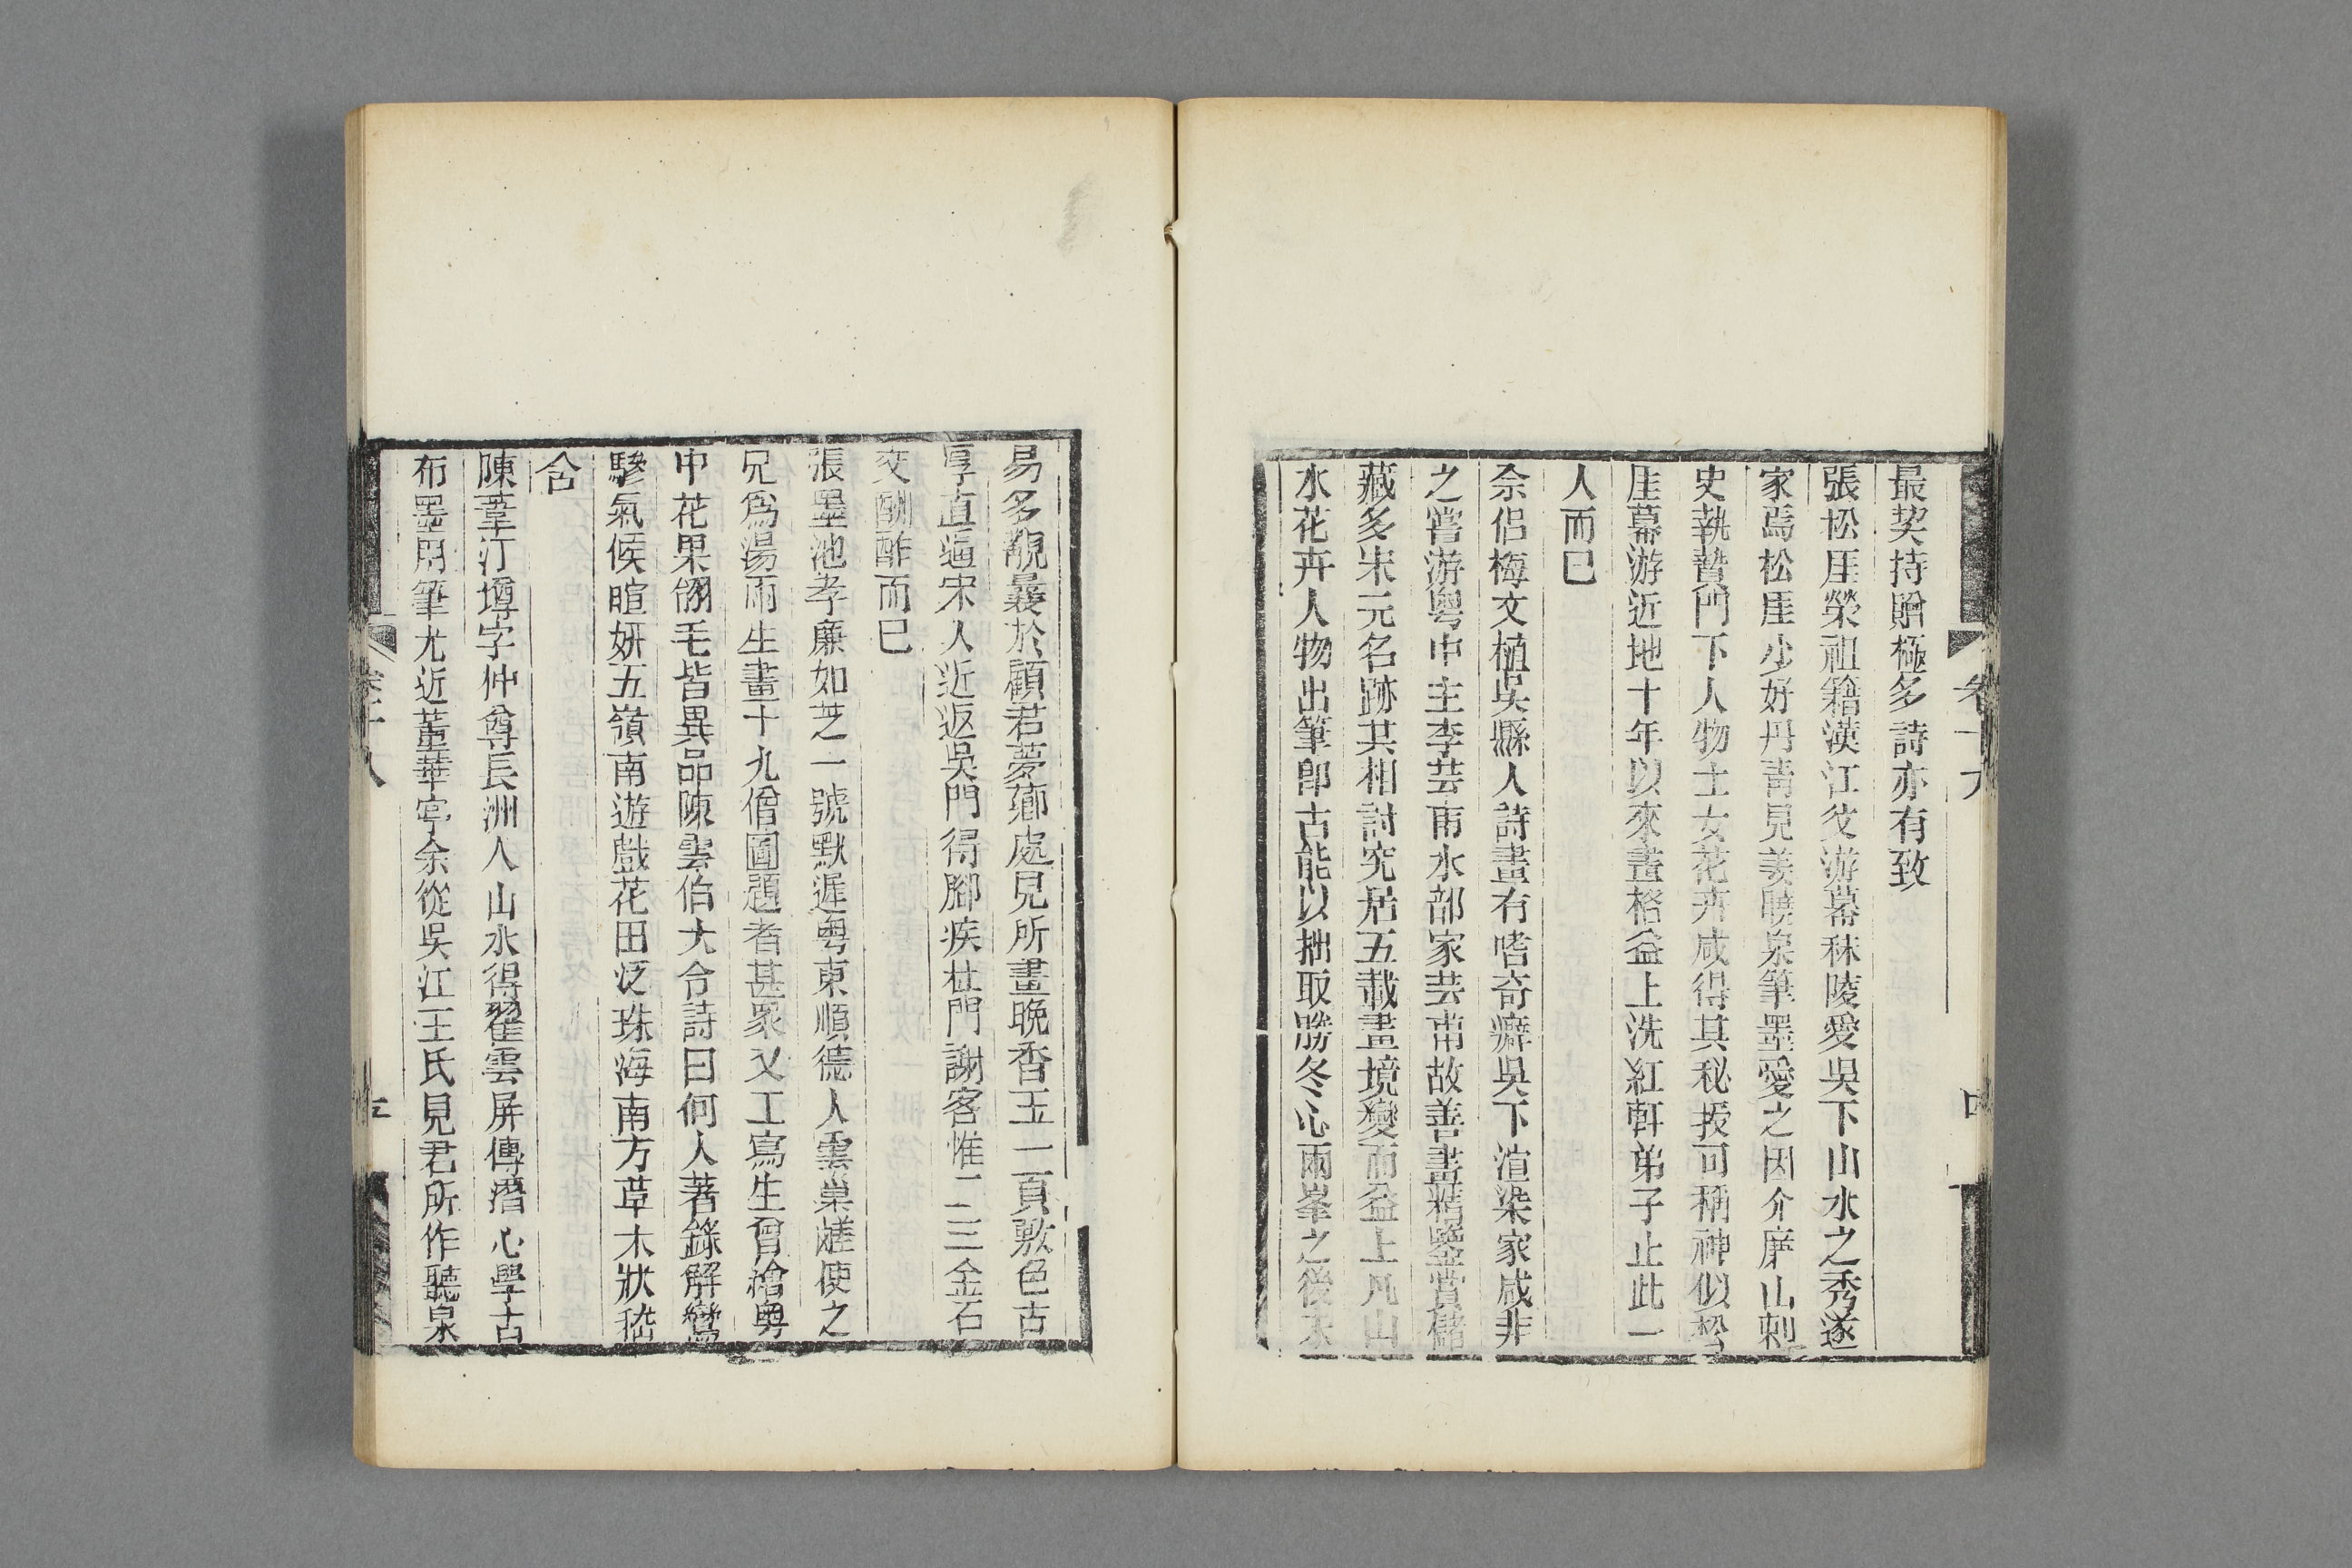 最契持贈極多詩亦有致
張松厓榮祖籍漢江笅游幕秣陵愛吳下山水之秀遂
家焉松厓少好丹靑見姜曉泉筆墨愛之因介唐山刺
史執贄門下人物士女花卉咸得其秘授可稱神似松
厓幕游近地十年以來畫格益上洗紅軒弟子止此一
人而巳
佘侣梅文植吳縣人詩畫有嗜奇癖吳下渲染家咸非
之嘗游粤中主李芸甫水部家芸甫故善畫精鑒賞儲
藏多宋元名跡共相討究居五載畫境變而益上凡山
水花卉人物出筆卽古能以拙取勝冬心兩峯之後不
易多覯曩於顧君夢薌處見所畫晚香玉一頁敷色古
厚直逼宋人近返吳門得腳疾杜門謝客惟二三金石
交酬酢而巳
張墨池孝廉如芝一號默遲粤東順德人雲巢鹺使之
兄爲湯雨生畫十九僧圖題者甚衆又工寫生曾繪粤
中花果翎毛皆異品陳雲伯大令詩曰何人著錄解鸞
驂氣候暄妍五嶺南遊戲花田泛珠海南方草木狀嵇
含
陳葦汀墫字仲尊長洲人山水得翟雲屏傳潛心學古
布墨用筆尤近董華亭余從吳江王氏見君所作聽泉